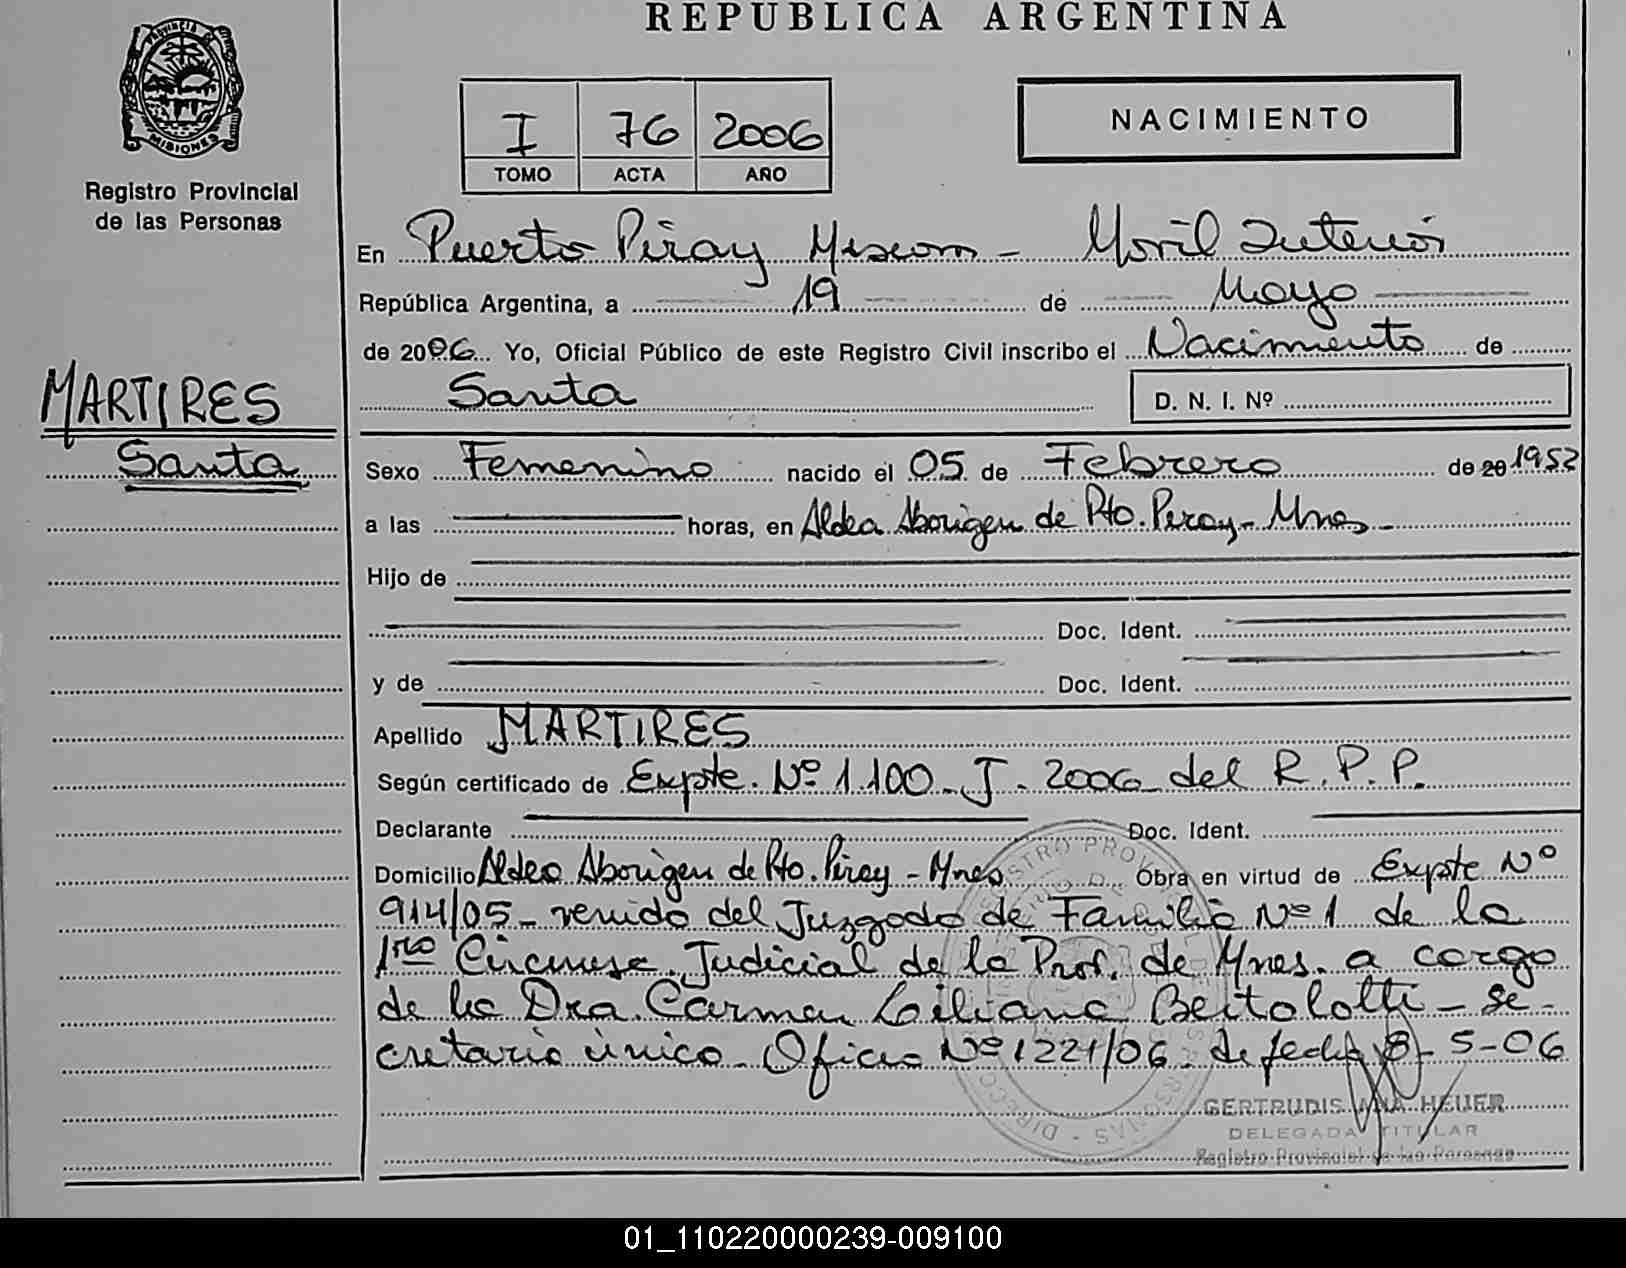 REPUBLICA ARGENTINA
PROVINCIA DE
MISIONES
Registro Provincial
de las Personas
I 76 2006
TOMO ACTA AÑO
NACIMIENTO
En Puerto Piray Misiones - Movil Interior
República Argentina, a 19 de Mayo
de 2006 Yo, Oficial Público de este Registro Civil inscribo el Nacimiento de
Santa
D. N. I. Nº
MARTIRES
Santa
Sexo Femenino nacido el 05 de Febrero de 20 1952
a las horas, en Aldea Aborigen de Pto. Piray - Mnes -
Hijo de
Doc. Ident.
y de Doc. Ident.
Apellido MARTIRES
Según certificado de Expte. Nº 1.100 - J - 2006 del R. P. P.
Declarante Doc. Ident.
Domicilio Aldea Aborigen de Pto. Piray - Mnes Obra en virtud de Expte Nº
914/05 - venido del Juzgado de Familia Nº 1 de la
1ra Circunsc. Judicial de la Prov. de Mnes. a cargo
de la Dra. Carmen Liliana Bertolotti - se-
cretaria única - Oficio Nº 1221/06 de fecha 8 - 5 - 06
GERTRUDIS ANA HEUER
DELEGADA TITULAR
Registro Provincial de las Personas
01_110220000239-009100